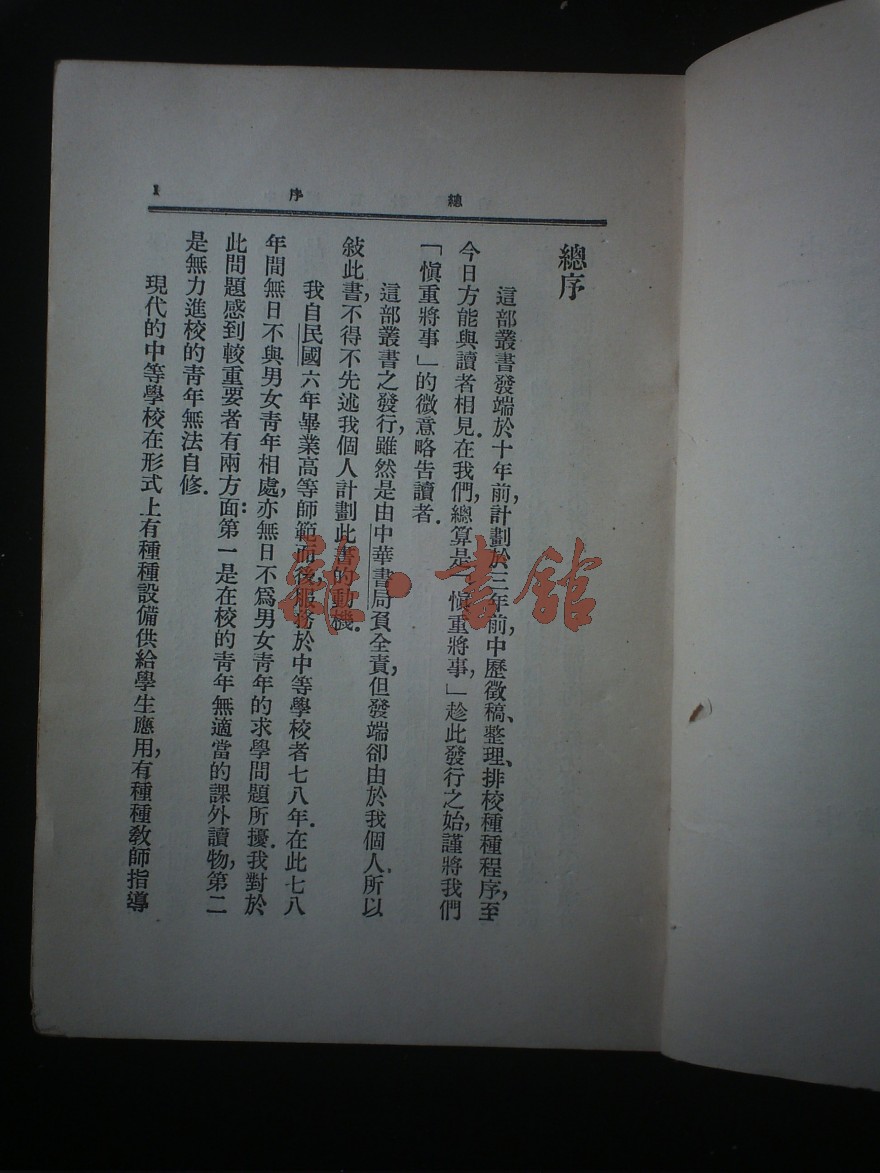 總序
1
總序
這部叢書發端於十年前,計劃於三年前,中歷徵稿、整理、排校種種程序,至
今日方能與讀者相見.在我們,總算是「愼重將事」,趁此發行之始,謹將我們
「愼重將事」的微意略告讀者.
這部叢書之發行,雖然是由中華書局負全責,但發端卻由於我個人.所以
敍此書,不得不先述我個人計劃此書的動機.
我自民國六年畢業高等師範而後,服務於中等學校者七八年.在此七八
年間無日不與男女靑年相處,亦無日不爲男女靑年的求學問題所擾.我對於
此問題感到較重要者有兩方面:第一是在校的靑年無適當的課外讀物,第二
是無力進校的靑年無法自修.
現代的中等學校在形式上有種種設備供給學生應用,有種種敎師指導
雜·書館